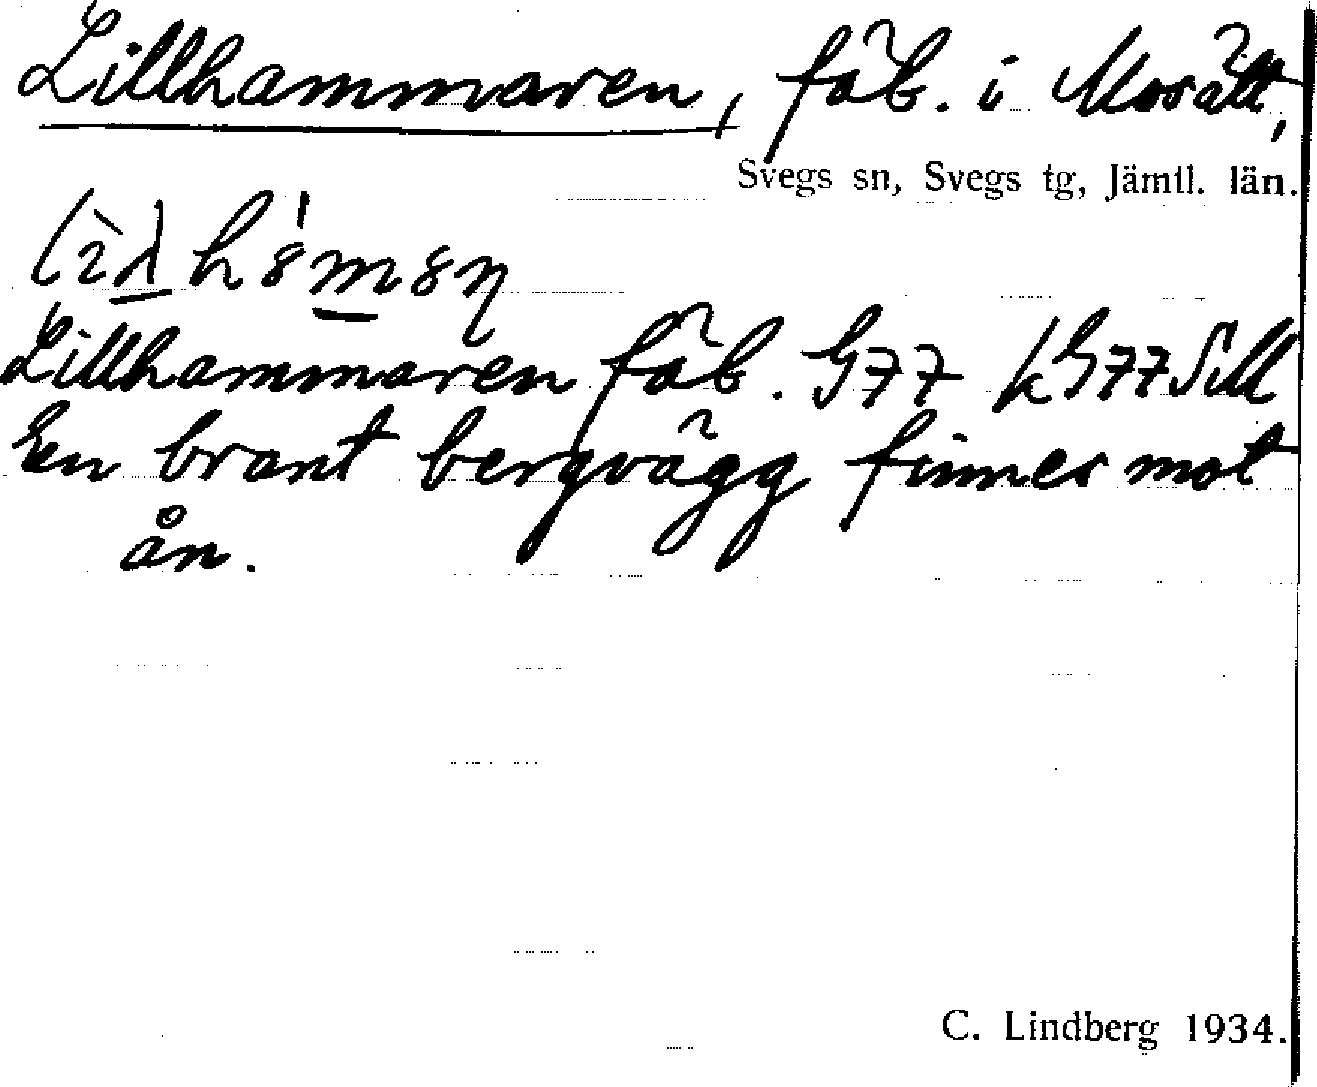 Lillhammaren, fäb. i Mosätt,
Svegs sn, Svegs tg, Jämtl. län.
Lillhammaren fäb. G77
En brant bergvägg finnes mot
ån.
C. Lindberg 1934.